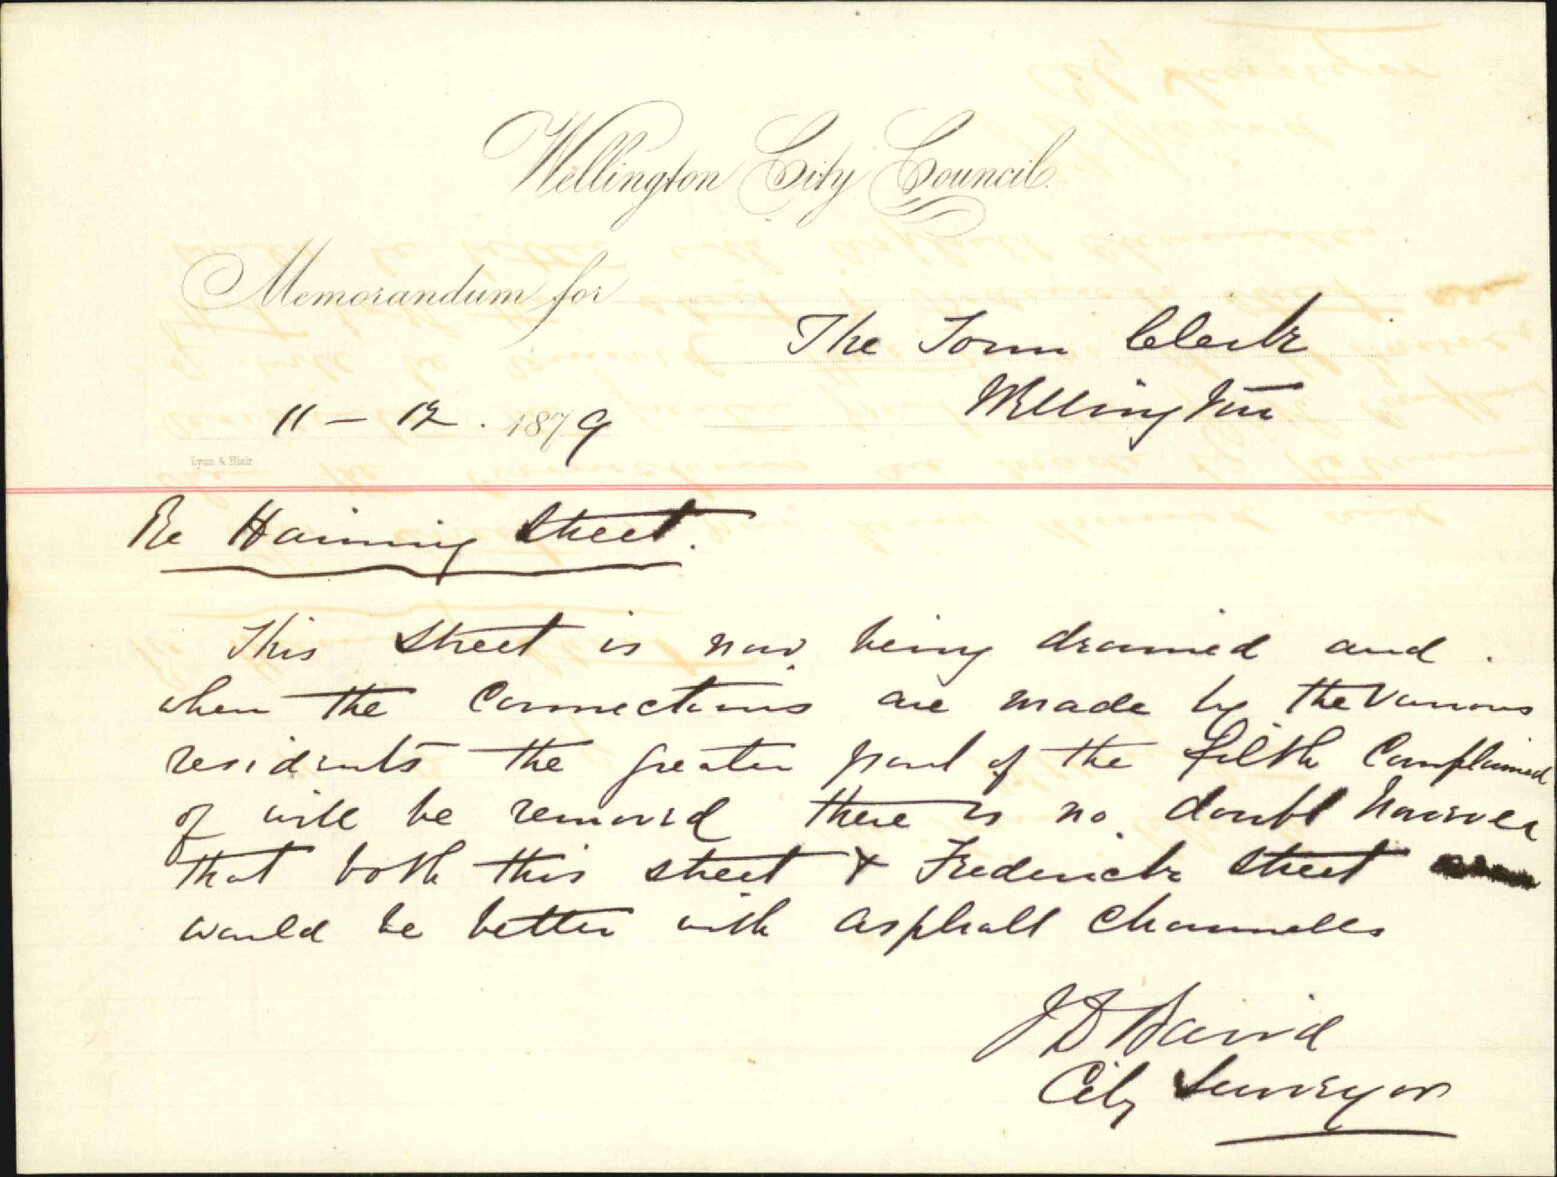 Wellington City Council.
Memorandum for
The Town Clerk
Wellington
11 - 12 . 1879
Lyon & Blair
Re Haining Street.
This street is now being drained and
when the connections are made by the various
residents the greater part of the filth complained
of will be removed there is no doubt however
that both this street & Frederick Street
would be better with asphalt channells
J D Baird
City Surveyor